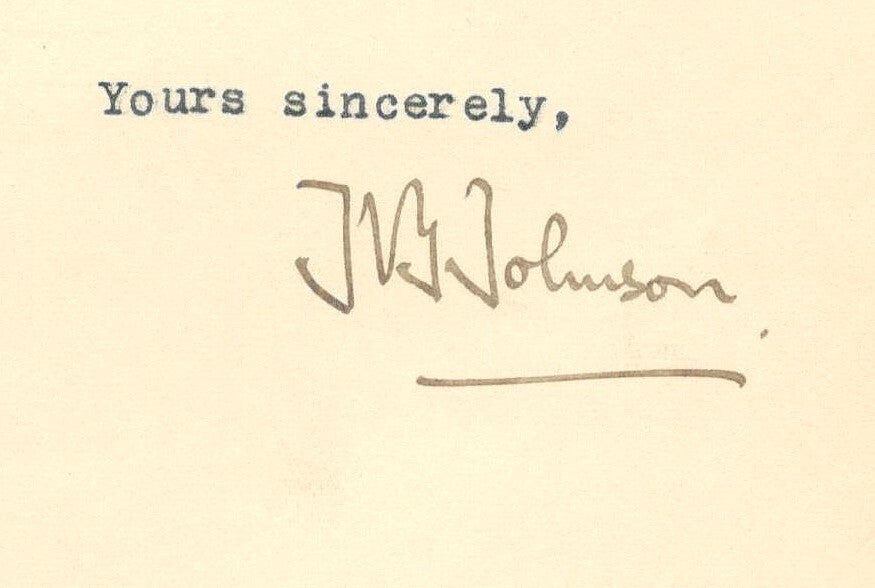 Yours sincerely,
Johnson